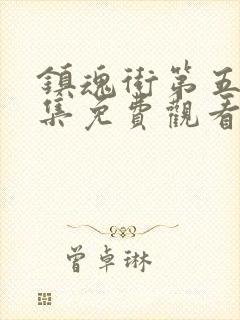 鎮魂街第五
集免費觀看
曾卓琳